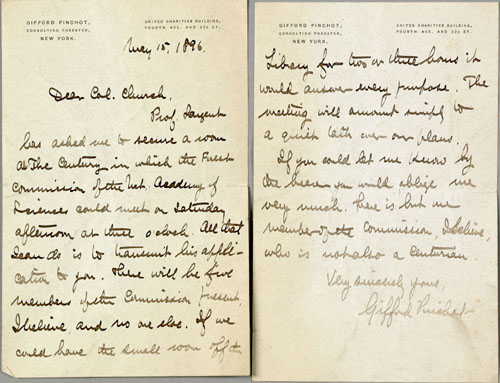 GIFFORD PINCHOT,
CONSULTING FORESTER,
NEW YORK.
UNITED CHARITIES BUILDING,
FOURTH AVE. AND 22D ST.
May 15, 1896.
Dear Col. Church,
Prof. Sargent
has asked me to secure a room
at The Century in which the Forest
Commission of the Nat. Academy of
Sciences could meet on Saturday
afternoon at three o'clock. All that
I can do is to transmit his appli-
cation to you. There will be five
members of the Commission present,
I believe and no one else. If we
could have the small room off the
GIFFORD PINCHOT,
CONSULTING FORESTER,
NEW YORK.
UNITED CHARITIES BUILDING,
FOURTH AVE. AND 22D ST.
Library for two or three hours it
would answer every purpose. The
meeting will amount simply to
a quiet talk over our plans.
If you could let me know by
the bearer you would oblige me
very much. There is but one
member of the Commission, I believe,
who is not also a Centurian.
Very sincerely yours,
Gifford Pinchot